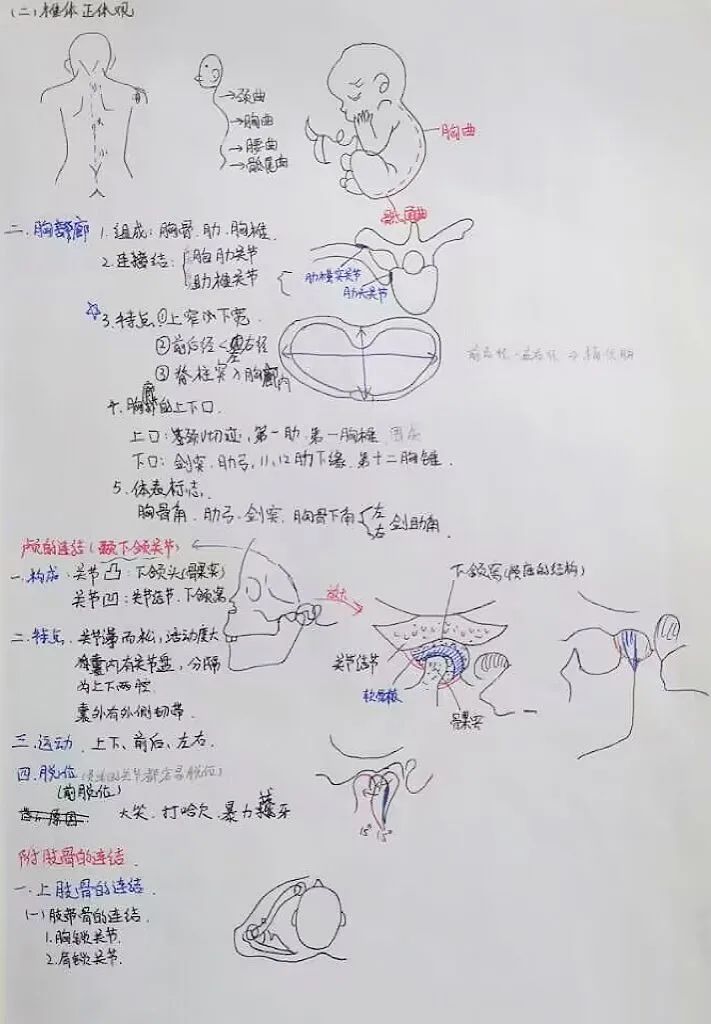 (二)椎体正体观
颈曲
胸曲
腰曲
骶尾曲
胸曲
骶尾曲
二.胸廓 1.组成:胸骨.肋.胸椎.
2.连接结: 胸肋关节
肋椎关节
肋椎突关节
肋头关节
3.特点 ①上窄下宽
②前后径<左右径
③脊柱突入胸廓内
4.胸廓的上下口
上口:颈切迹,第一肋.第一胸椎
下口:剑突.肋弓,11,12肋下缘.第十二胸锥.
5.体表标志.
胸骨角.肋弓.剑突.胸骨下角 左 右 剑肋角.
颅的连结(颞下颌关节)
一.构成:关节凸:下颌头(髁突)
关节凹:关节结节.下颌窝
放大
下颌窝(
的结构)
二.特点.关节薄而松,活动度大
囊内有关节盘,分隔
为上下两腔
囊外有外侧韧带.
关节结节
髁突
三.运动.上下、前后、左右.
四.脱位
(前脱位)
原因 大笑.打哈欠.暴力拔牙
15° 15°
附肢骨的连结.
一.上肢骨的连结.
(一)肢带骨的连结.
1.胸锁关节.
2.肩锁关节.